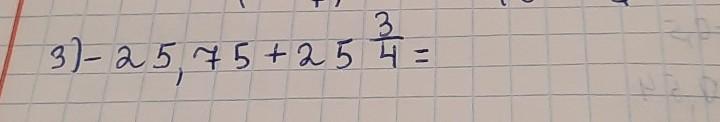 3) - 25,75 + 25 3/4 =